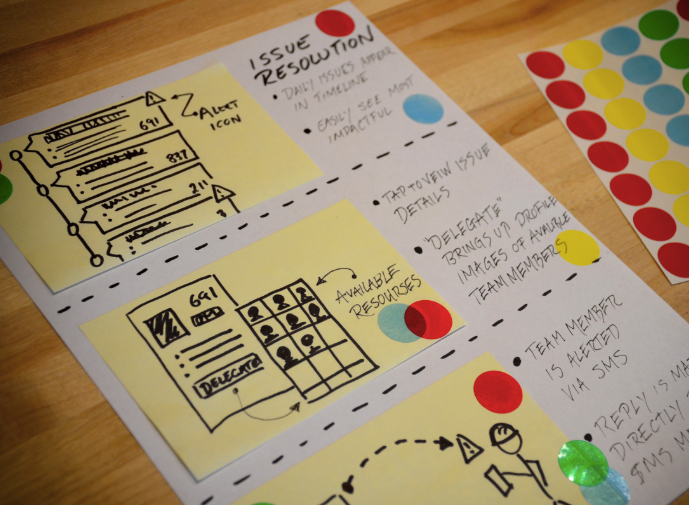 ISSUE
RESOLUTION
• DAILY ISSUES APPEAR
IN TIMELINE
• EASILY SEE MOST
IMPACTFUL
ALERT
ICON
691
837
211
3
• TAP TO VEIW ISSUE
DETAILS
• "DELEGATE"
BRINGS UP PROFILE
IMAGES OF AVALIBLE
TEAM MEMBERS
691
DELEGATE
AVAILABLE
RESOURSES
• TEAM MEMBER
IS ALERTED
VIA SMS
• REPLY IS
DIRECTLY
SMS